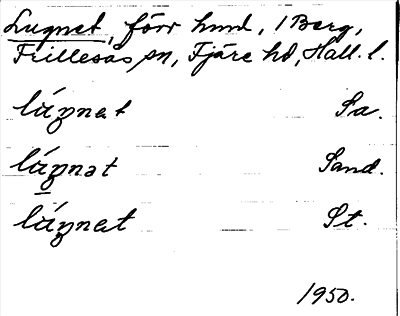 Lugnet, förr hmd, 1 Berg,
Frillesås sn, Fjäre hd, Hall. l.
lúgnat Sa.
lúgnət Sand.
lúgnat St.
1950.